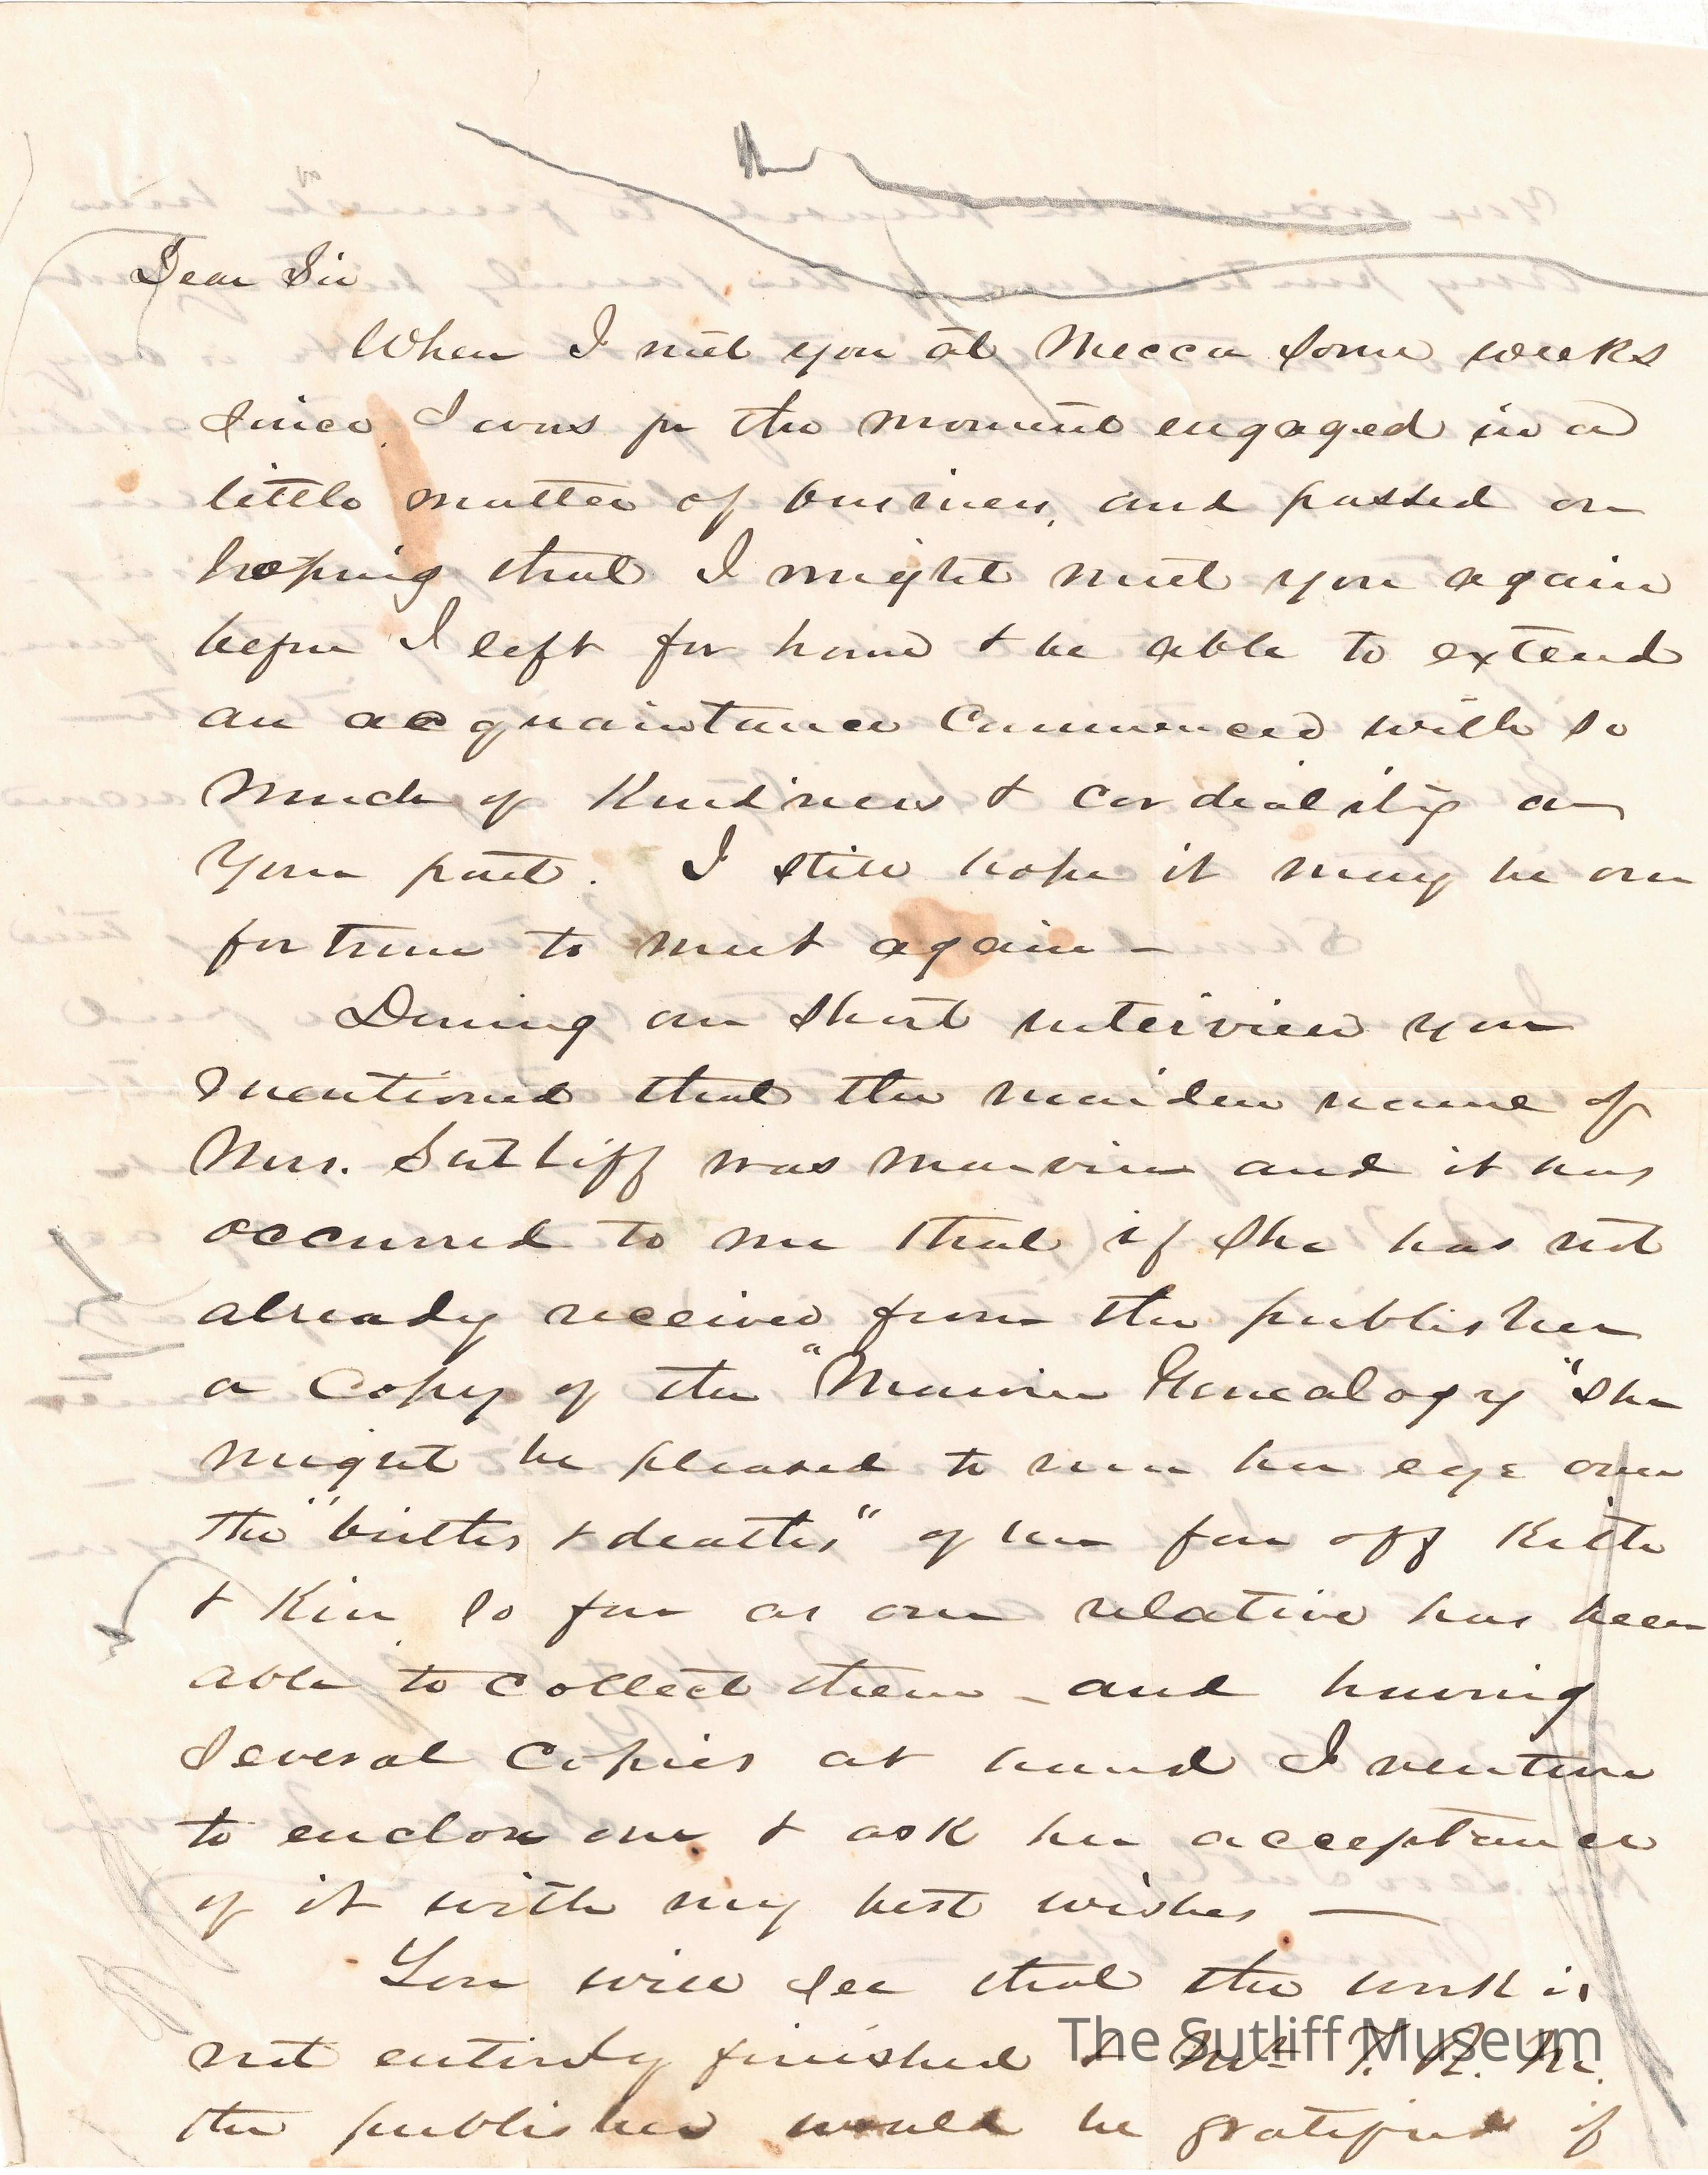 Dear Sir
When I met you at Mecca some weeks
since I was for the moment engaged in a
little matter of business, and passed on
hoping that I might meet you again
before I left for home & be able to extend
an acquaintance commenced with so
much of kindness & cordiality on
your part. I still hope it may be our
fortune to meet again -
During our short interview you
mentioned that the maiden name of
Mrs. Sutliff was Marvin and it has
occurred to me that if she has not
already received from the publisher
a copy of the "Marvin Genealogy" she
might be pleased to run her eye over
the "births & deaths" of her far off Kith
& Kin so far as our relative has been
able to collect them - and having
several copies at hand I venture
to enclose one & ask her acceptance
of it with my best wishes —
You will see that the work is
not entirely finished & Mr T. R. M.
the publisher would be gratified if
The Sutliff Museum